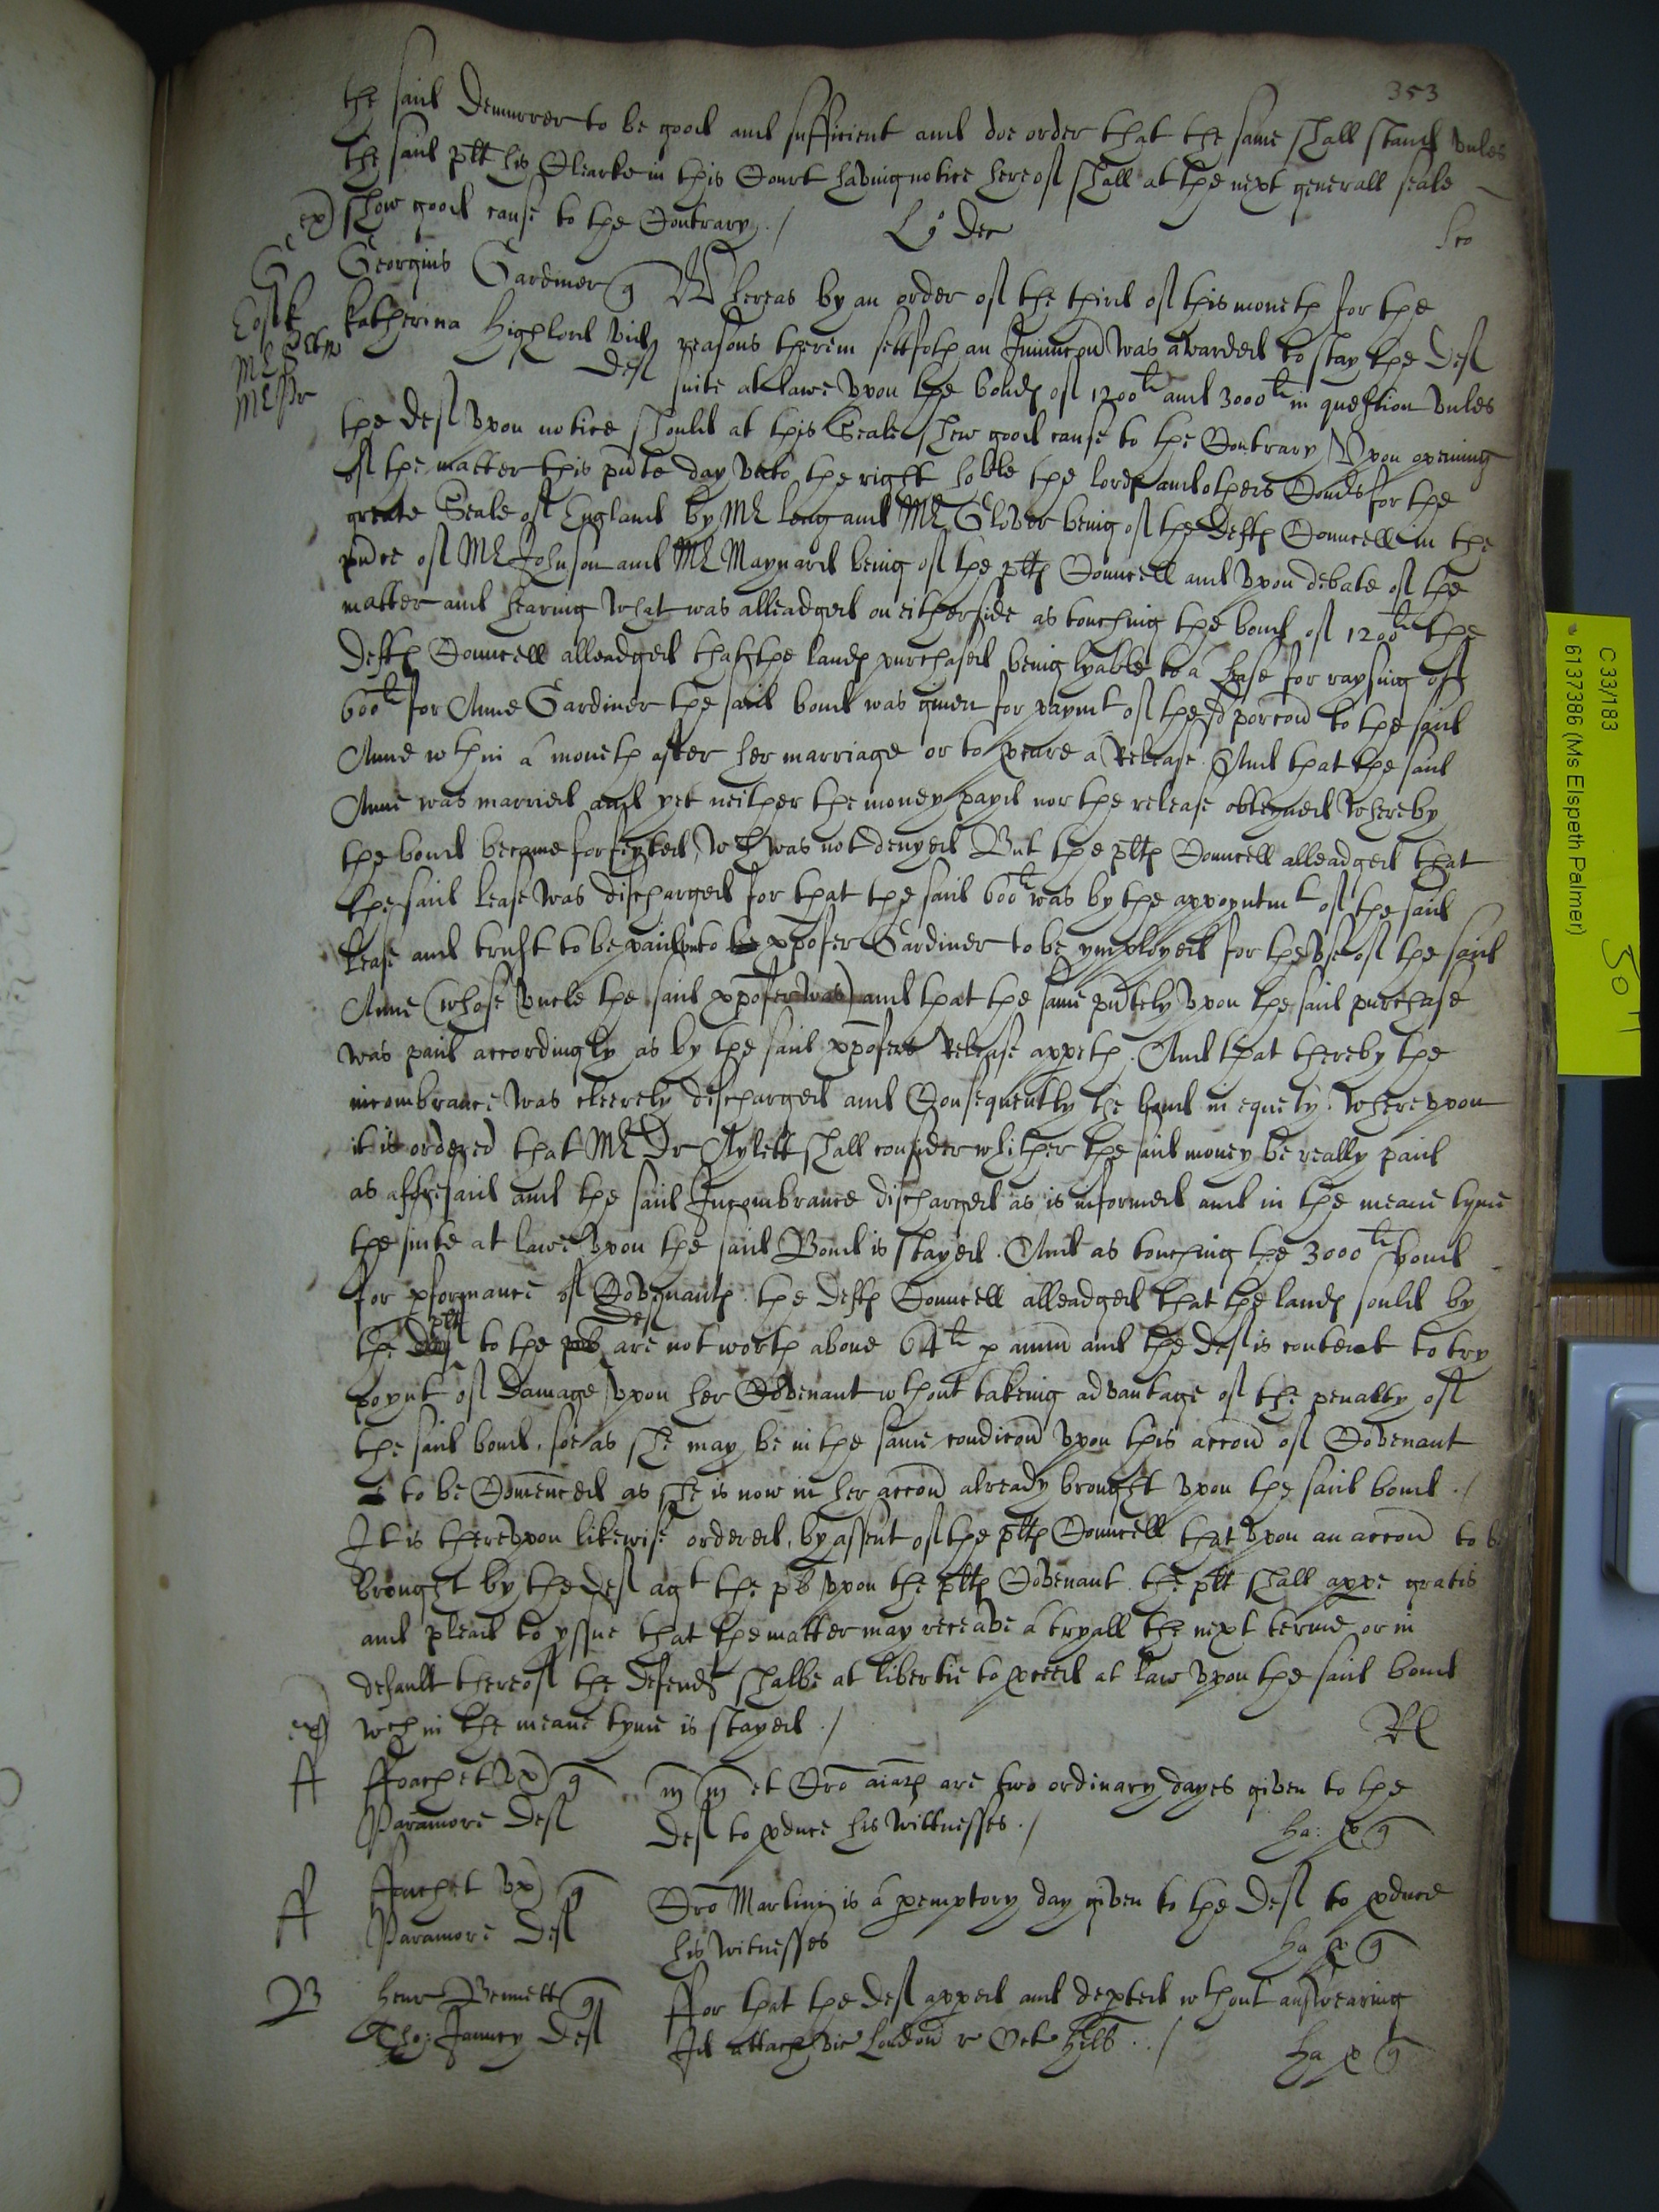 353
the said Demurrer to be good and sufficient and doe order that the same shall stand vnles
the said plt his Clearke in this Court having notice hereof shall at the next generall seale
ex) shew good cause to the Contrary ./
Georgius Gardiner q Whereas by an order of the third of this moneth for the
Katherina Highlord vid reasons therein settforth an Iniuncon was awarded to stay the Def
Def suite at lawe vpon the bonds of 1200li and 3000li in question vnles
the Def vpon notice should at this Seale shew good cause to the Contrary Vpon opening
of the matter this pnte day vnto the right hoble the lords and others Comrs for the
greate Seale of England by Mr and Mr Glover being of the Defts Councell in the
pnce of Mr Johnson and Mr Maynard being of the plts Councell and vpon debate of the
matter and hearing what was alleadged on either side as touching the bond of 1200li the
Defts Councell alleadged that the lands purchased being lyable to a lease for raysing of
600li for Anne Gardiner the said bond was given for paymt of the sd porcon to the said
Anne wthin a moneth after her marriage or to pcure a Release. And that the said
Anne was married and yet neither the money payd nor the release obteyned whereby
the bond became forfeyted, wch was not denyed But the plts Councell alleadged that
the said lease was discharged for that the said 600li was by the appoyntmt of the said
lease and trust to be paid vnto xpofer Gardiner to be ymployed for the vse of the said
Anne (whose vncle the said xpofer was) and that the same pntely vpon the said purchase
was paid accordingly as by the said xpofers Release appeth. And that thereby the
incombrance was cleerely discharged and Consequently the bond in equety. Wherevpon
it is ordered that Mr Dr Aylett shall consider whither the said money be really paid
as aforesaid and the said Incombrance discharged as is informed and in the meane tyme
the suite at lawe vpon the said Bond is stayed. And as touching the 3000li bond
for pformance of Covenants the Defts Councell alleadged that the lands sould by
the plt to the Def are not worth above 64li p annu and the Def is content to try
poynt of Damage vpon her Covenant wthout takeing advantage of the penalty of
the said bond. soe as she may be in the same condicon vpon this accon of Covenant
to be Comenced as she is now in her accon already brought vpon the said bond ./
It is therevpon likewise ordered, by assent of the plts Councell that vpon an accon to be
brought by the Def agt the pb vpon the plts Covenant the plt shall appe gratis
and plead to yssue that the matter may receave a tryall the next terme or in
default thereof the Defendt shalbe at libertie to pceed at law vpon the said bond
ex) wch in the meane tyme is stayed ./ Rl
ff ffoachet vx) q m m et Cro aiarz are two ordinary dayes given to the
Paramore Def Def to pduce his wittnesses ./ ha: p q
ff ffachet vx) q Cro Martini is a pemptory day given to the Def to pduce
Paramore Def his witnesses ha p q
B Henr Bennett q ffor that the Def apped and depted wthout answearing
Tho: Janney Def Id attach vic London r Oct Hill ./ ha p q
C 33/183
6137386 (Ms Elspeth Palmer)
50